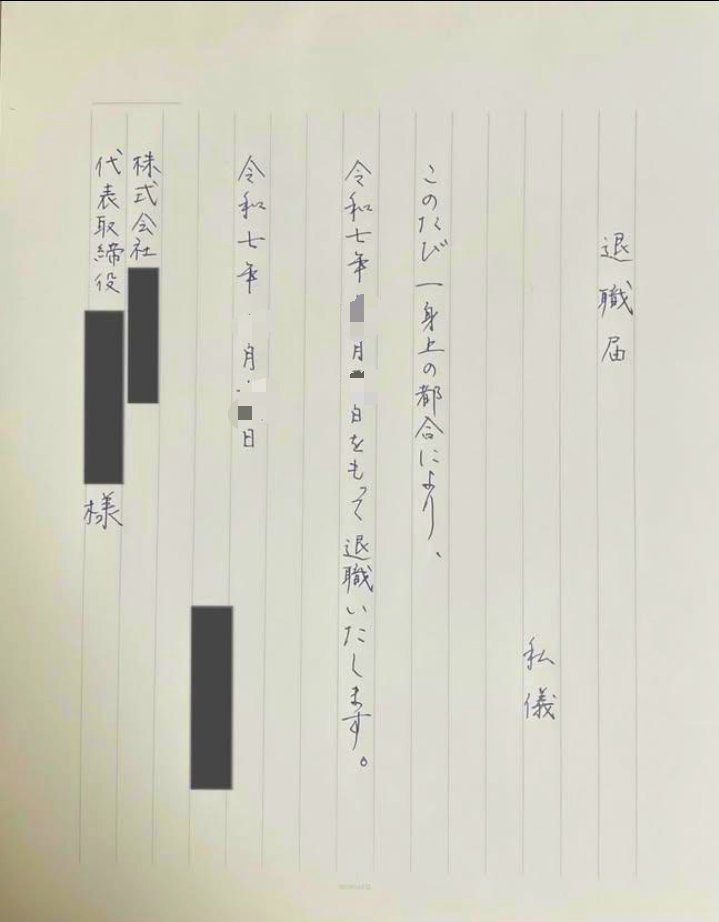 退職届
私儀
このたび一身上の都合により、
令和七年 月 日をもって退職いたします。
令和七年 月 日
株式会社
代表取締役 様